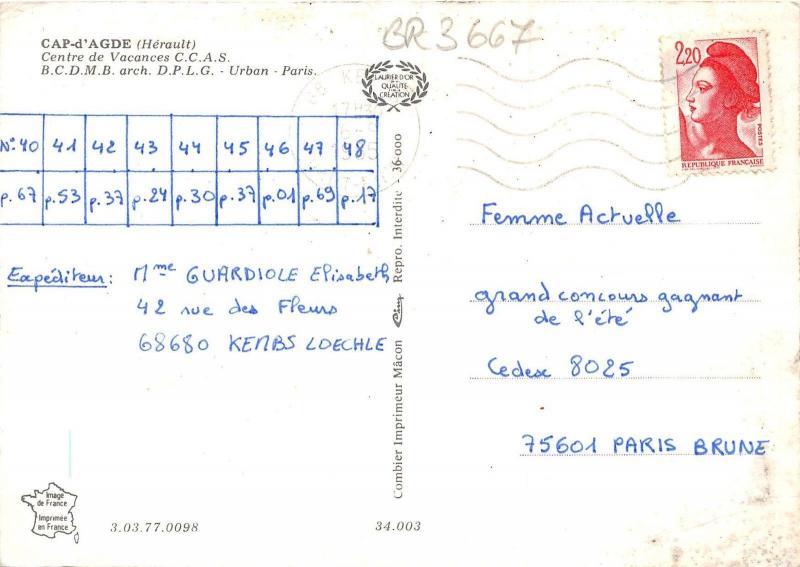 BR3667
CAP-d'AGDE (Hérault)
Centre de Vacances C.C.A.S.
B.C.D.M.B. arch. D.P.L.G. - Urban - Paris.
LAURIER D'OR
DE
QUALITÉ
CRÉATION
2,20
POSTES
REPUBLIQUE FRANÇAISE
N°40 41 42 43 44 45 46 47 48
p.67 p.53 p.37 p.24 p.30 p.37 p.01 p.69 p.17
Expéditeur: Mme GUARDIOLE Elisabeth
42 rue des Fleurs
68680 KEMBS LOECHLE
Femme Actuelle
grand concours gagnant
de l'été
Cedex 8025
75601 PARIS BRUNE
Combier Imprimeur Mâcon Cim Repro. Interdite - 36-000
Image
de France
Imprimée
en France
3.03.77.0098
34.003